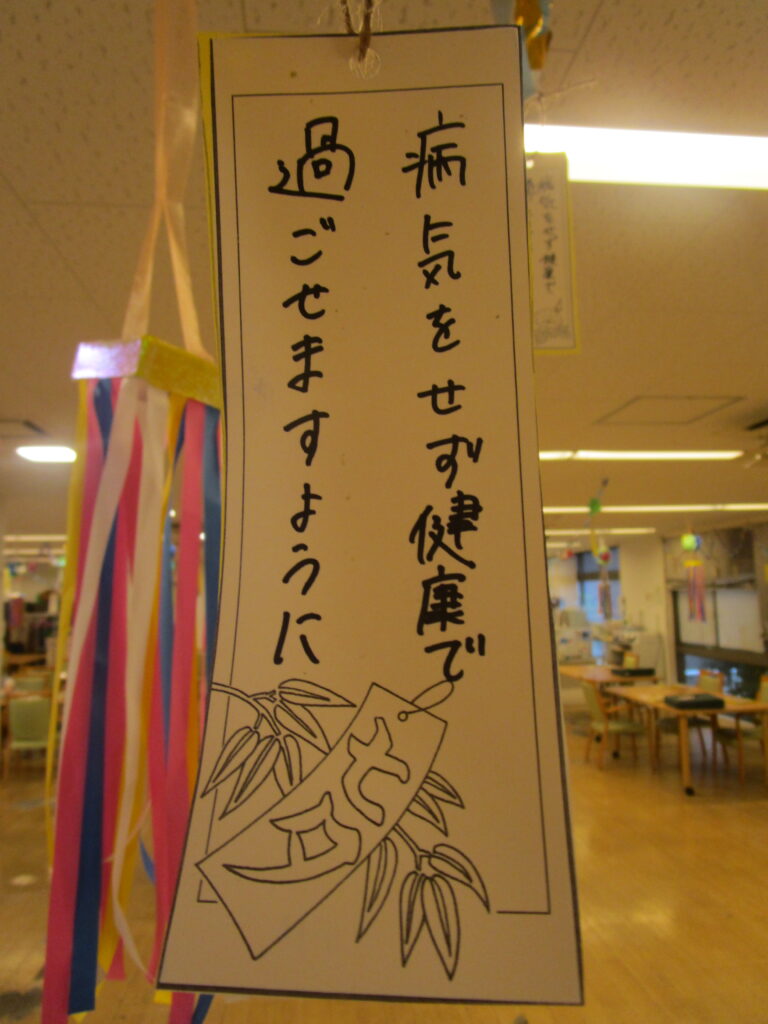 病気をせず健康で
過ごせますように
七夕